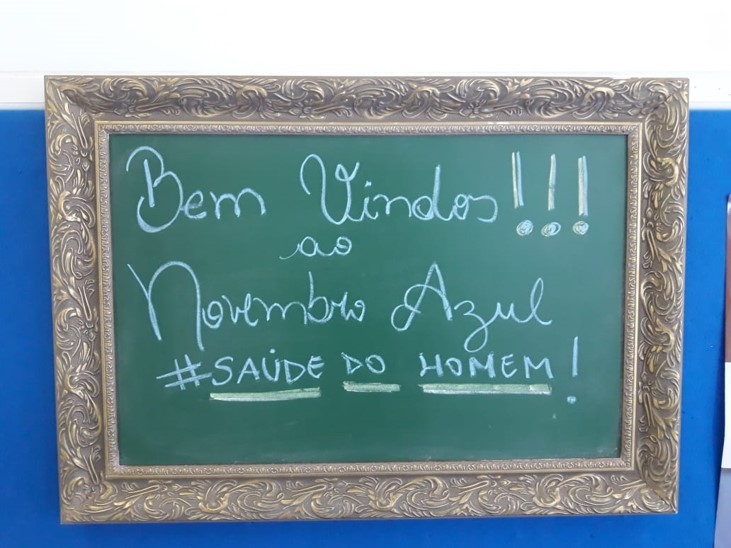 Bem Vindos!!!
ao
Novembro Azul
#SAÚDE DO HOMEM!